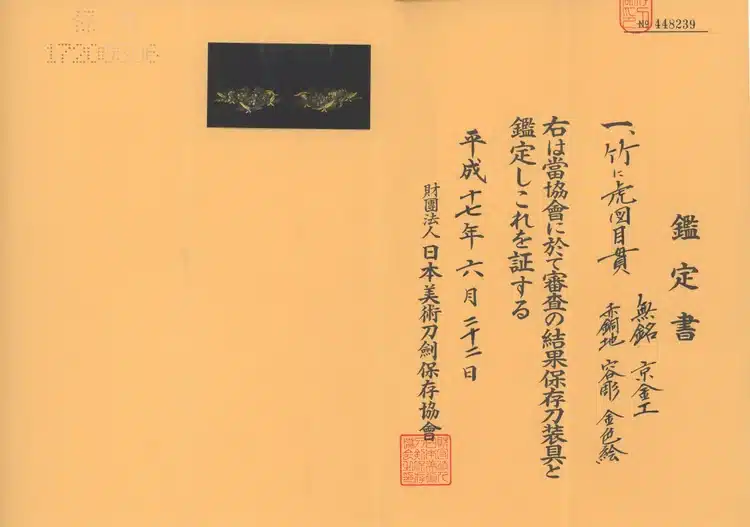 № 448239
鑑定書
一、竹に虎図目貫
無銘 京金工
赤銅地 容彫 金色絵
右は當協會に於て審査の結果保存刀装具と
鑑定しこれを証する
平成十七年六月二十二日
財團法人 日本美術刀劍保存協會